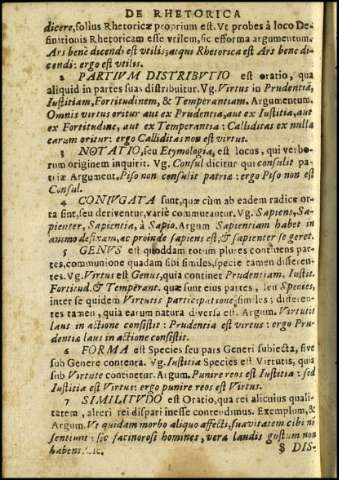 DE RHETORICA
dicere, solius Rhetoricæ proprium est. Ve probes à loco De-
finitionis Rhetoricam esse vtilem, sic efforma argumentum.
Ars benè dicendi est vtilis; atqui Rhetorica est Ars benè di-
cendi: ergo est vtilis.
2 PARTIVM DISTRIBVTIO est oratio, qua
aliquid in partes suas distribuitur. Vg. Virtus in Prudentiā,
Iustitiam, Fortitudinem, & Temperantiam. Argumentum.
Omnis virtus oritur aut ex Prudentia, aut ex Iustitia, aut
ex Fortitudine, aut ex Temperantia: Calliditas ex nulla
earum oritur: ergo Calliditas non est virtus.
3 NOTATIO, seu Etymologia, est locus, qui verbo-
rum originem inquirit. Vg. Consul dicitur qui consulit pa-
triæ Argument, Piso non consulit patriæ: ergo Piso non est
Consul.
4 CONIVGATA sunt, quæ cùm ab eadem radice or-
ta sint, seu deriventur, variè commutantur. Vg. Sapiens, Sa-
pienter, Sapientia, à Sapio. Argum Sapientiam habet in
animo defixam, ac proinde sapiens est, & sapienter se geret.
5 GENVS est quoddam totum plures continens par-
tes, communione quadam sibi similes, specie tamen differen-
tes. Vg. Virtus est Genus, quia continet Prudentiam. Iustit.
Fortitud. & Temperant. quæ sunt eius partes, seu Species,
inter se quidem Virtutis participatione similes; differen-
tes tamen, quia earum natura diversa est. Argum. Virtutis
laus in actione consistit: Prudentia est virtus: ergo Pru-
dentiæ laus in actione consistit.
6 FORMA est Species seu pars Generi subiecta, sive
sub Genere contenta. Vg. Iustitia Species est Virtutis, quia
sub Virtute continetur. Argum. Punire reos est Iustitia: sed
Iustitia est Virtus: ergo punire reos est Virtus.
7 SIMILITVDO est Oratio, qua rei alicuius quali-
tatem, alteri rei dispari inesse contendimus. Exemplum, &
Argum. Vt quidam morbo aliquo affecti, suavitatem cibi nō
sentiunt: sic facinorosi homines, veræ laudis gustum non
habent. &c.
8 DIS-